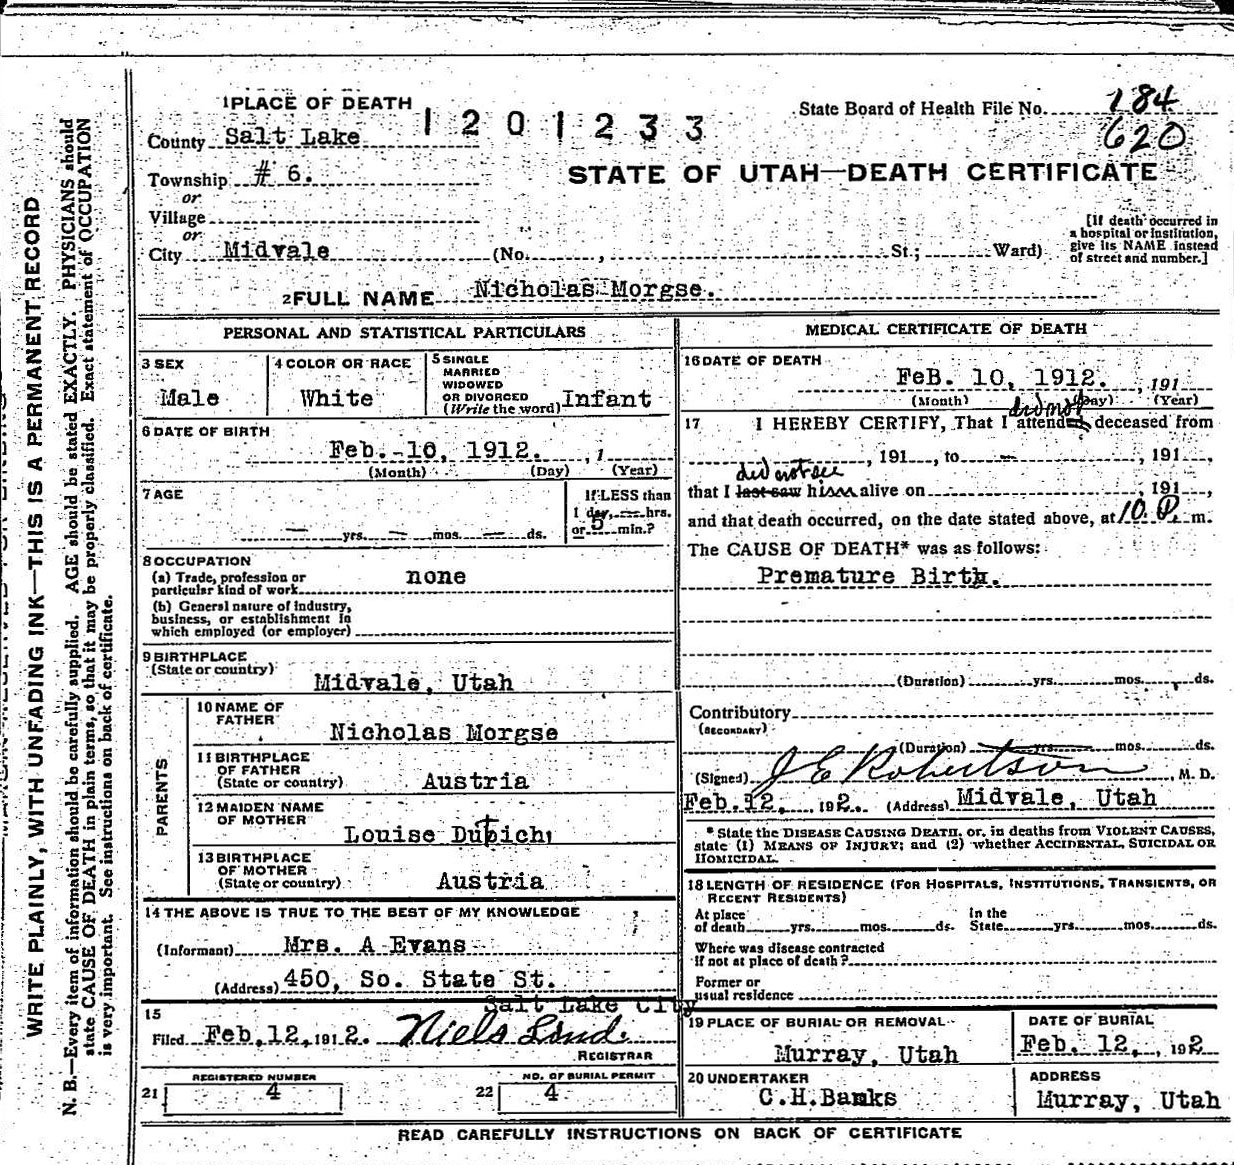 1 PLACE OF DEATH
1201233
State Board of Health File No. 184
620
County Salt Lake
Township # 6.
or
Village
or
City Midvale (No. , St.; Ward)
STATE OF UTAH—DEATH CERTIFICATE
[If death occurred in
a hospital or institution,
give its NAME instead
of street and number.]
2 FULL NAME Nicholas Morgse.
PERSONAL AND STATISTICAL PARTICULARS
3 SEX
Male
4 COLOR OR RACE
White
5 SINGLE
MARRIED
WIDOWED
OR DIVORCED
(Write the word) Infant
6 DATE OF BIRTH
Feb. 10, 1912. , 1
(Month) (Day) (Year)
7 AGE
— yrs. — mos. — ds.
If LESS than
1 day, — hrs.
or 5 min.?
8 OCCUPATION
(a) Trade, profession or
particular kind of work none
(b) General nature of industry,
business, or establishment in
which employed (or employer)
9 BIRTHPLACE
(State or country)
Midvale, Utah
PARENTS
10 NAME OF
FATHER
Nicholas Morgse
11 BIRTHPLACE
OF FATHER
(State or country) Austria
12 MAIDEN NAME
OF MOTHER
Louise
13 BIRTHPLACE
OF MOTHER
(State or country) Austria
14 THE ABOVE IS TRUE TO THE BEST OF MY KNOWLEDGE
(Informant) Mrs. A Evans
(Address) 450, So. State St.
Salt Lake City
15
Filed Feb. 12, 1912. Niels Lind
REGISTRAR
21 REGISTERED NUMBER
4
22 NO. OF BURIAL PERMIT
4
MEDICAL CERTIFICATE OF DEATH
16 DATE OF DEATH
FeB. 10, 1912. , 191
(Month) (Day) (Year)
17 I HEREBY CERTIFY, That I did not attended deceased from
, 191 , to — , 191 ,
did not see
that I last saw him alive on , 191 ,
and that death occurred, on the date stated above, at 10 P. m.
The CAUSE OF DEATH* was as follows:
Premature Birth.
(Duration) yrs. mos. ds.
Contributory
(SECONDARY)
(Duration) yrs. mos. ds.
(Signed) J E Robertson , M. D.
Feb. 12, 1912. (Address) Midvale, Utah
* State the DISEASE CAUSING DEATH, or, in deaths from VIOLENT CAUSES,
state (1) MEANS OF INJURY; and (2) whether ACCIDENTAL, SUICIDAL OR
HOMICIDAL.
18 LENGTH OF RESIDENCE (FOR HOSPITALS, INSTITUTIONS, TRANSIENTS, OR
RECENT RESIDENTS)
At place
of death yrs. mos. ds.
In the
State yrs. mos. ds.
Where was disease contracted
If not at place of death?
Former or
usual residence
19 PLACE OF BURIAL OR REMOVAL
Murray, Utah
DATE OF BURIAL
Feb. 12, , 1912
20 UNDERTAKER
C.H.Banks
ADDRESS
Murray, Utah
READ CAREFULLY INSTRUCTIONS ON BACK OF CERTIFICATE
WRITE PLAINLY, WITH UNFADING INK—THIS IS A PERMANENT RECORD
N. B.—Every item of information should be carefully supplied. AGE should be stated EXACTLY. PHYSICIANS should
state CAUSE OF DEATH in plain terms, so that it may be properly classified. Exact statement of OCCUPATION
is very important. See instructions on back of certificate.